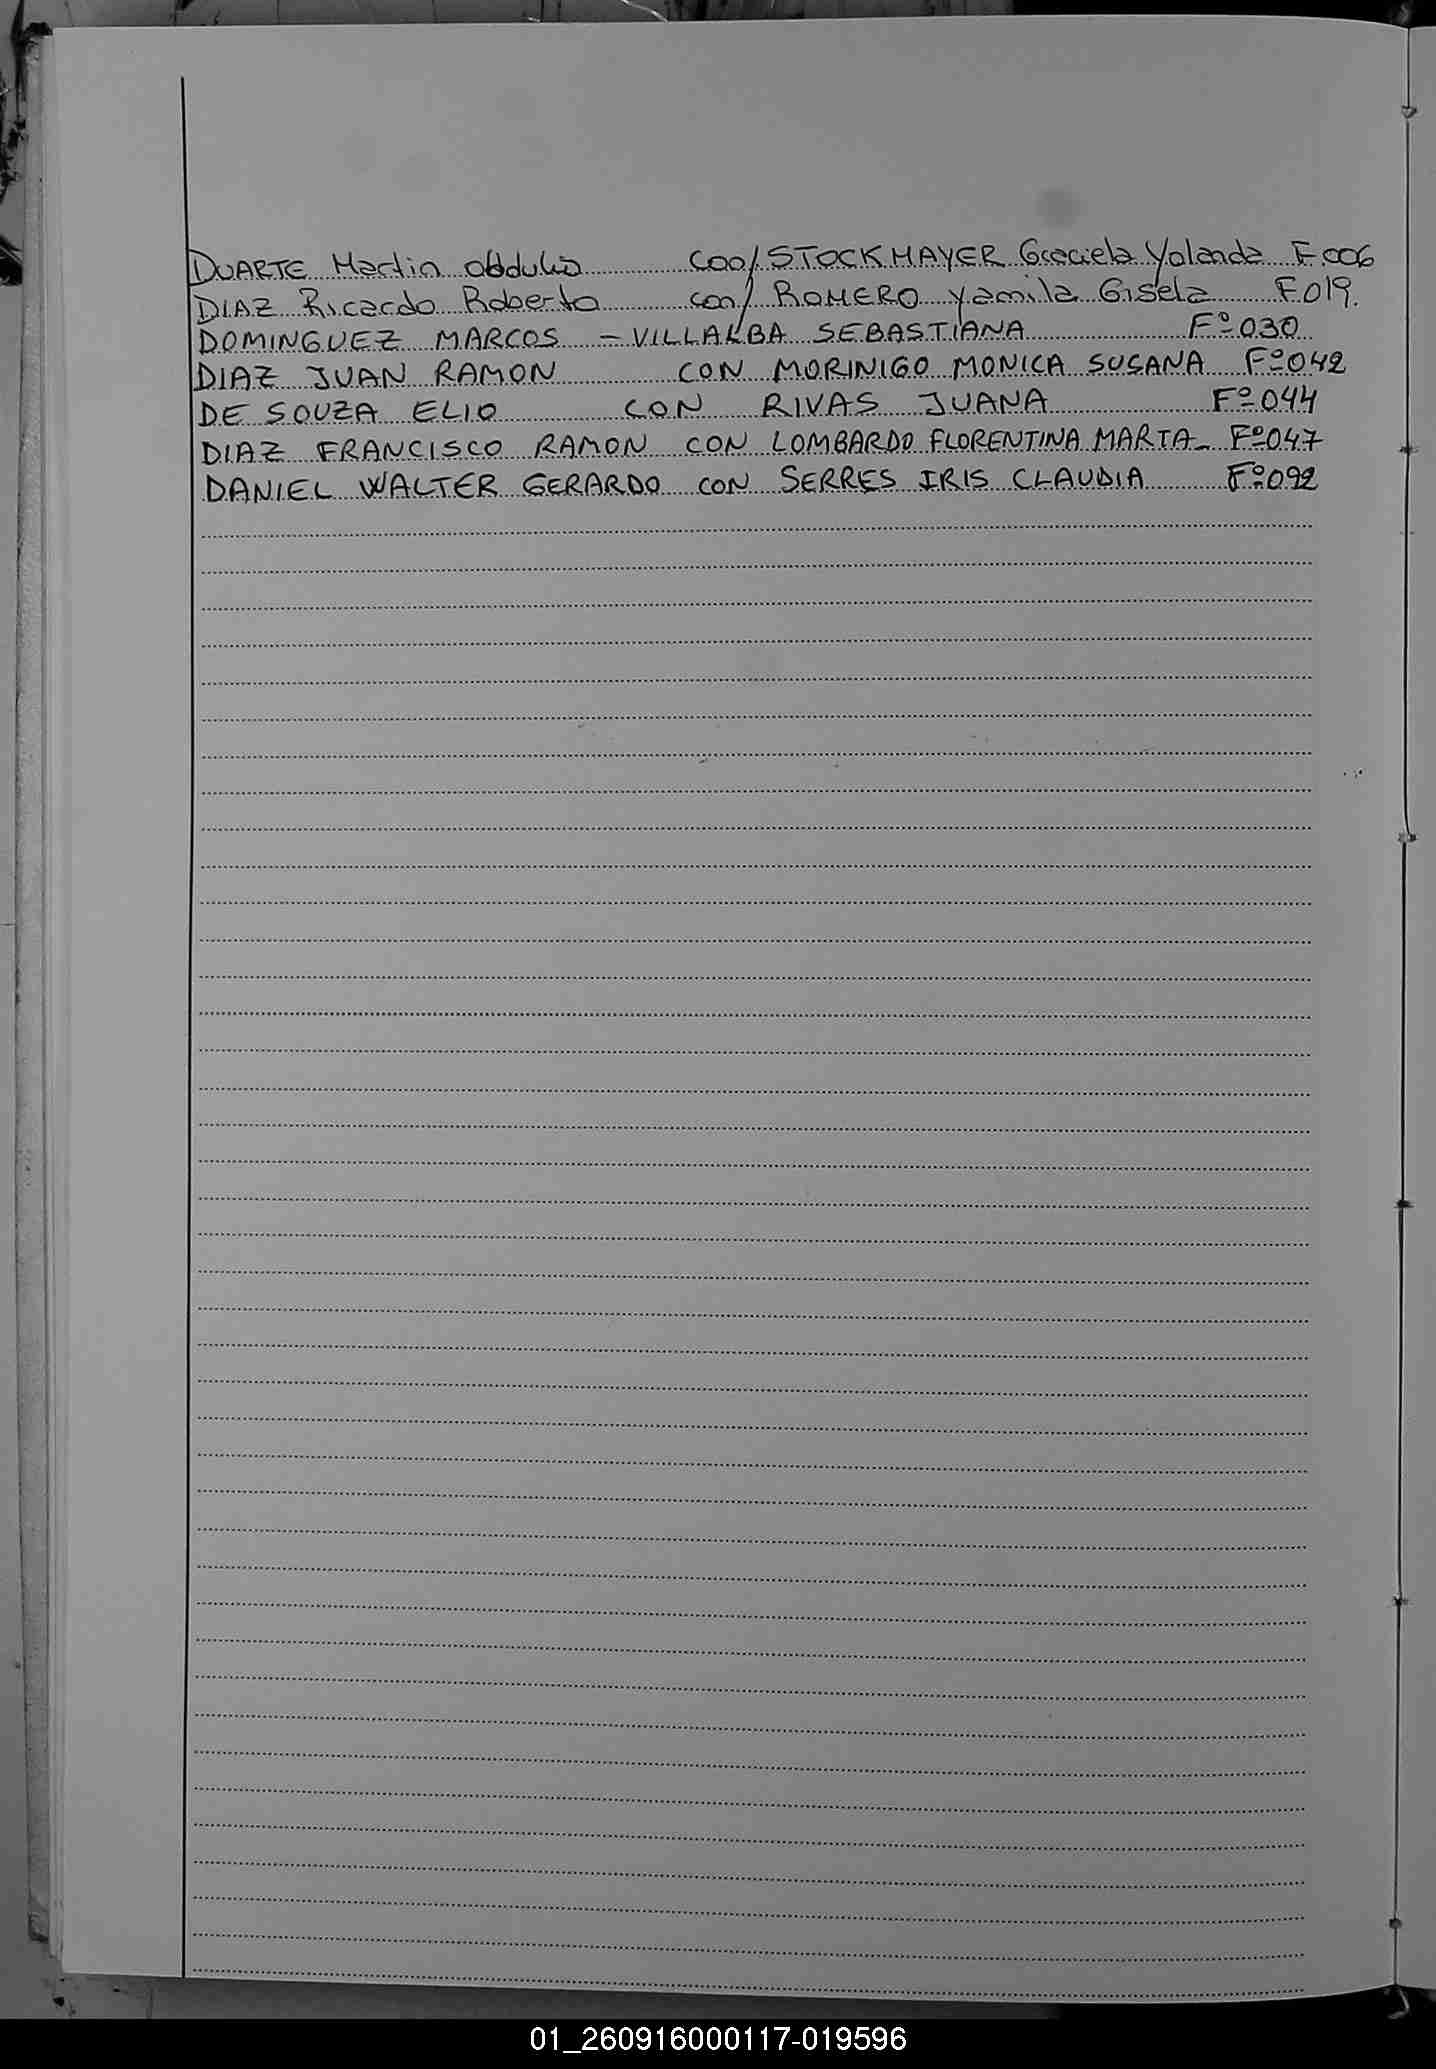 DUARTE Martin Obdulio con/ STOCKMAYER Graciela Yolanda F.006
DIAZ Ricardo Roberto con/ ROMERO Yamila Gisela F.019.
DOMINGUEZ MARCOS - VILLALBA SEBASTIANA Fº030
DIAZ JUAN RAMON CON MORINIGO MONICA SUSANA Fº042
DE SOUZA ELIO CON RIVAS JUANA Fº044
DIAZ FRANCISCO RAMON CON LOMBARDO FLORENTINA MARTA- Fº047
DANIEL WALTER GERARDO CON SERRES IRIS CLAUDIA Fº092
01_260916000117-019596